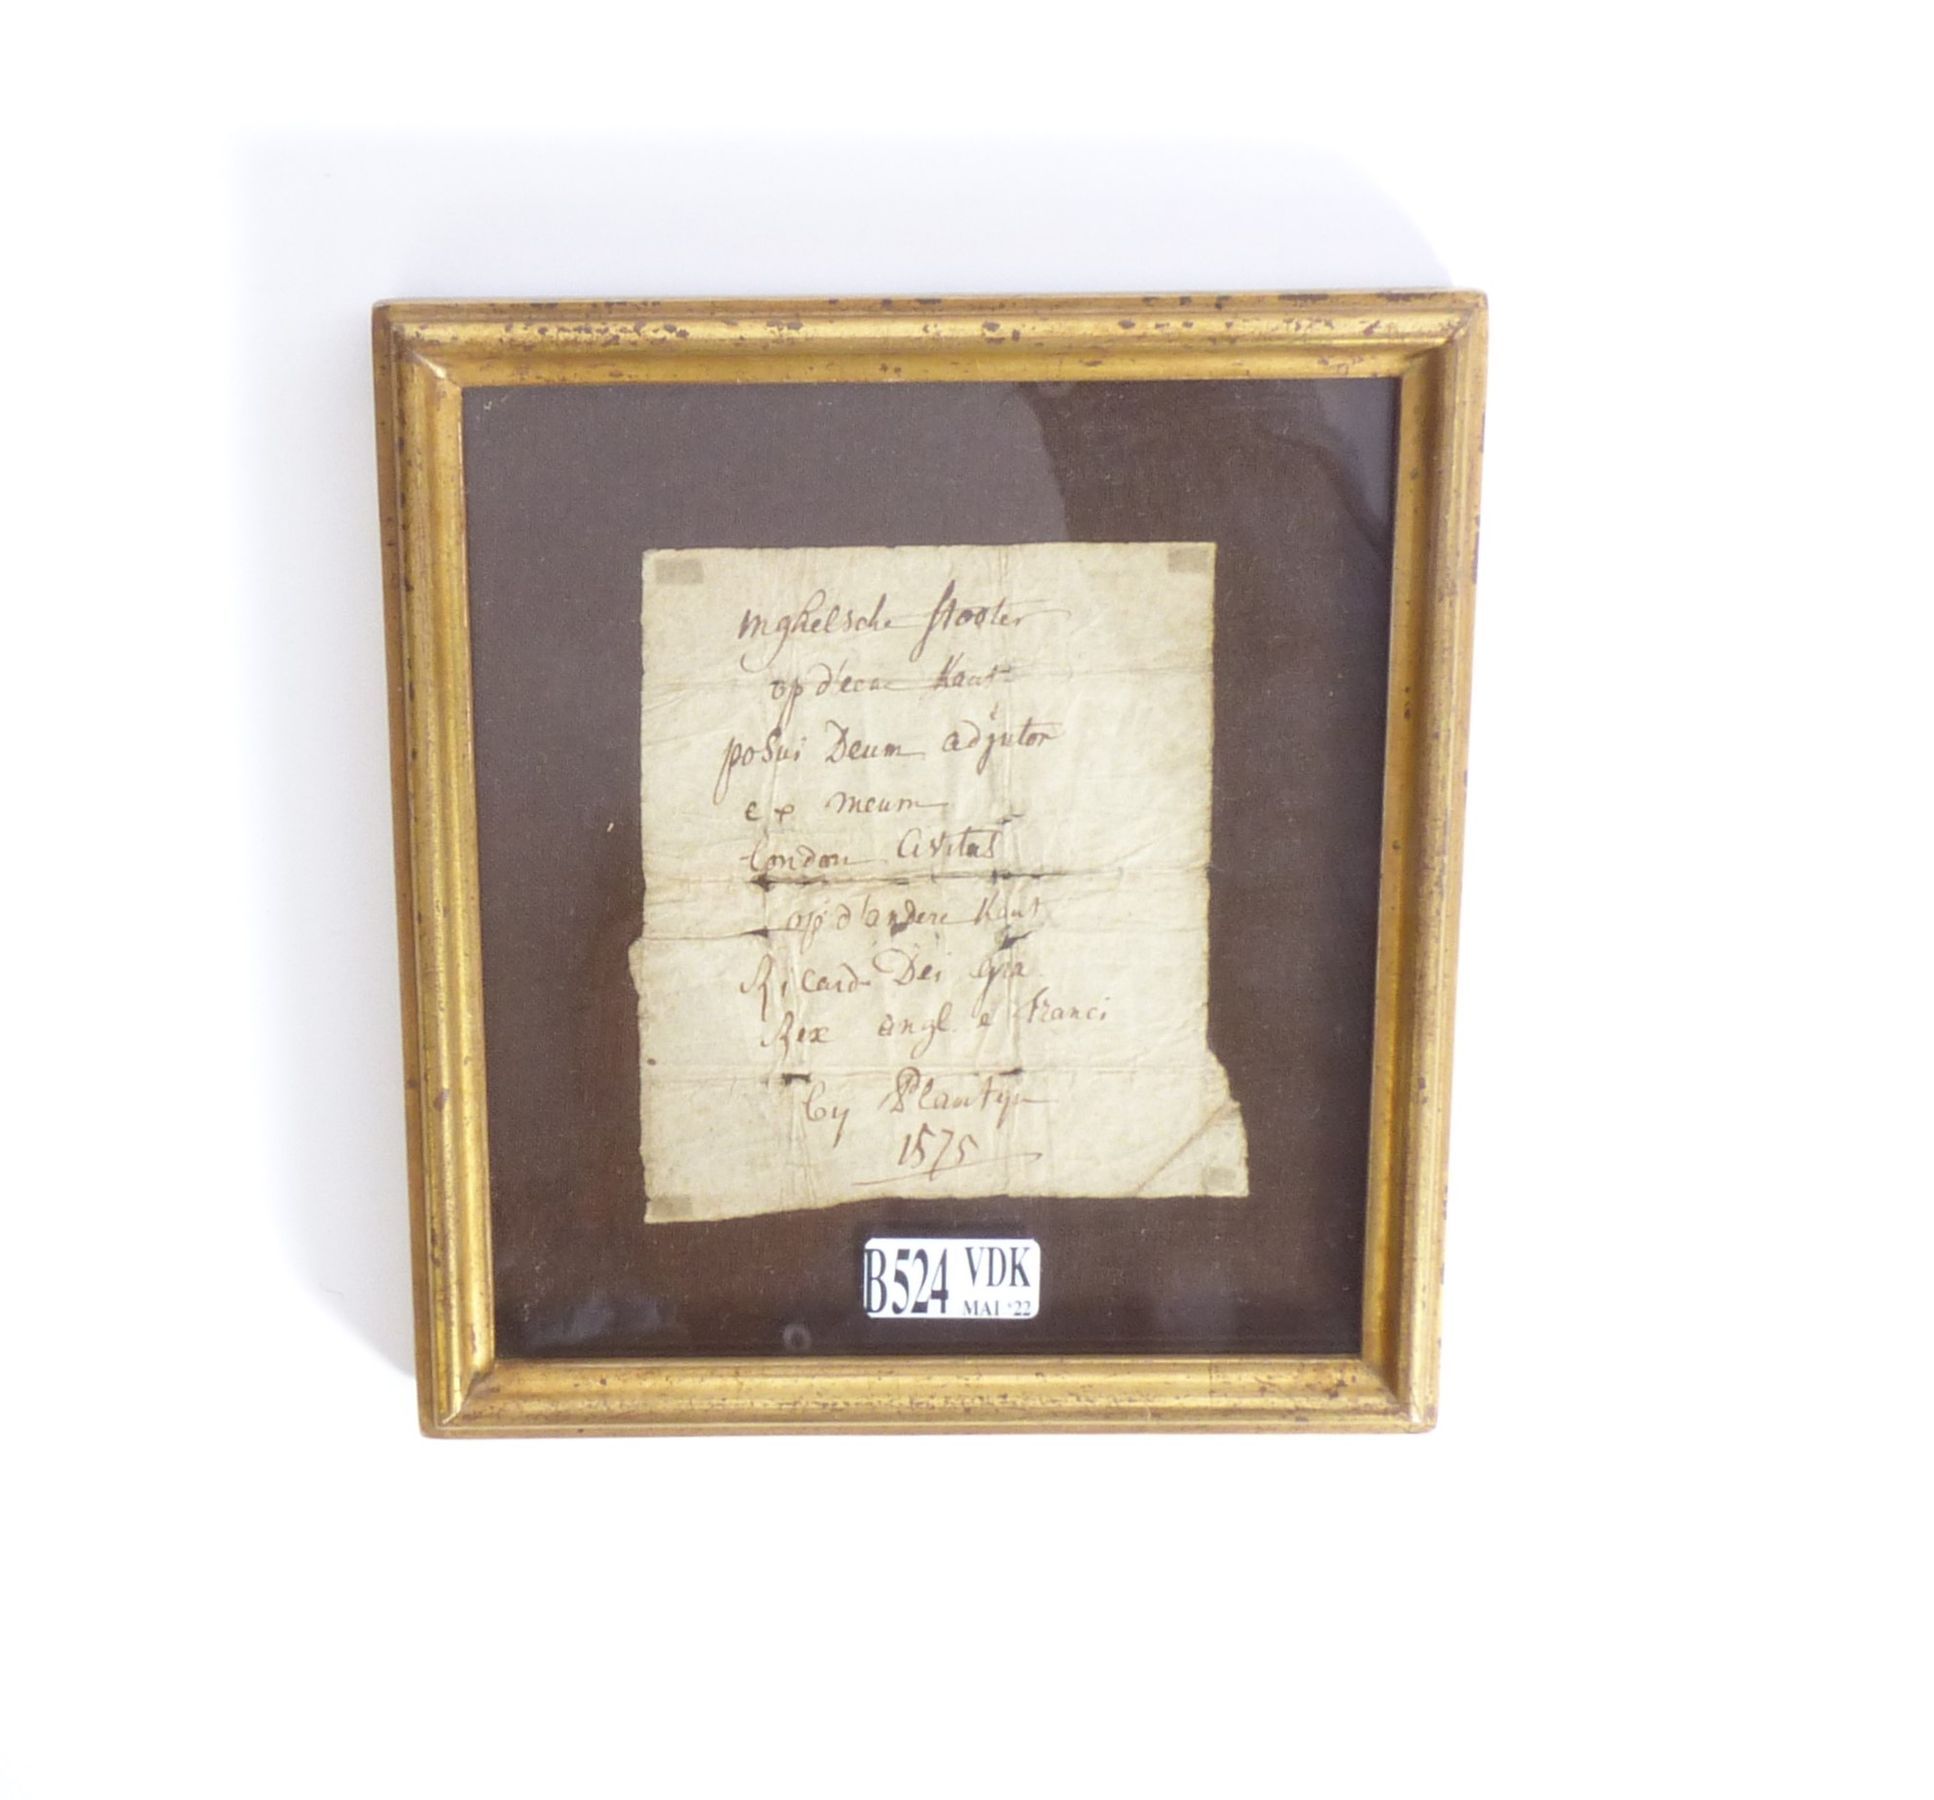 inghelsche stooter
op d'eene Kant
posui Deum adjutor
e meum
London Civitas
op d'andere Kant
Ricard Dei gra
Rex angl e franci
by Plantyn
1575
B524 VDK
MAI '22